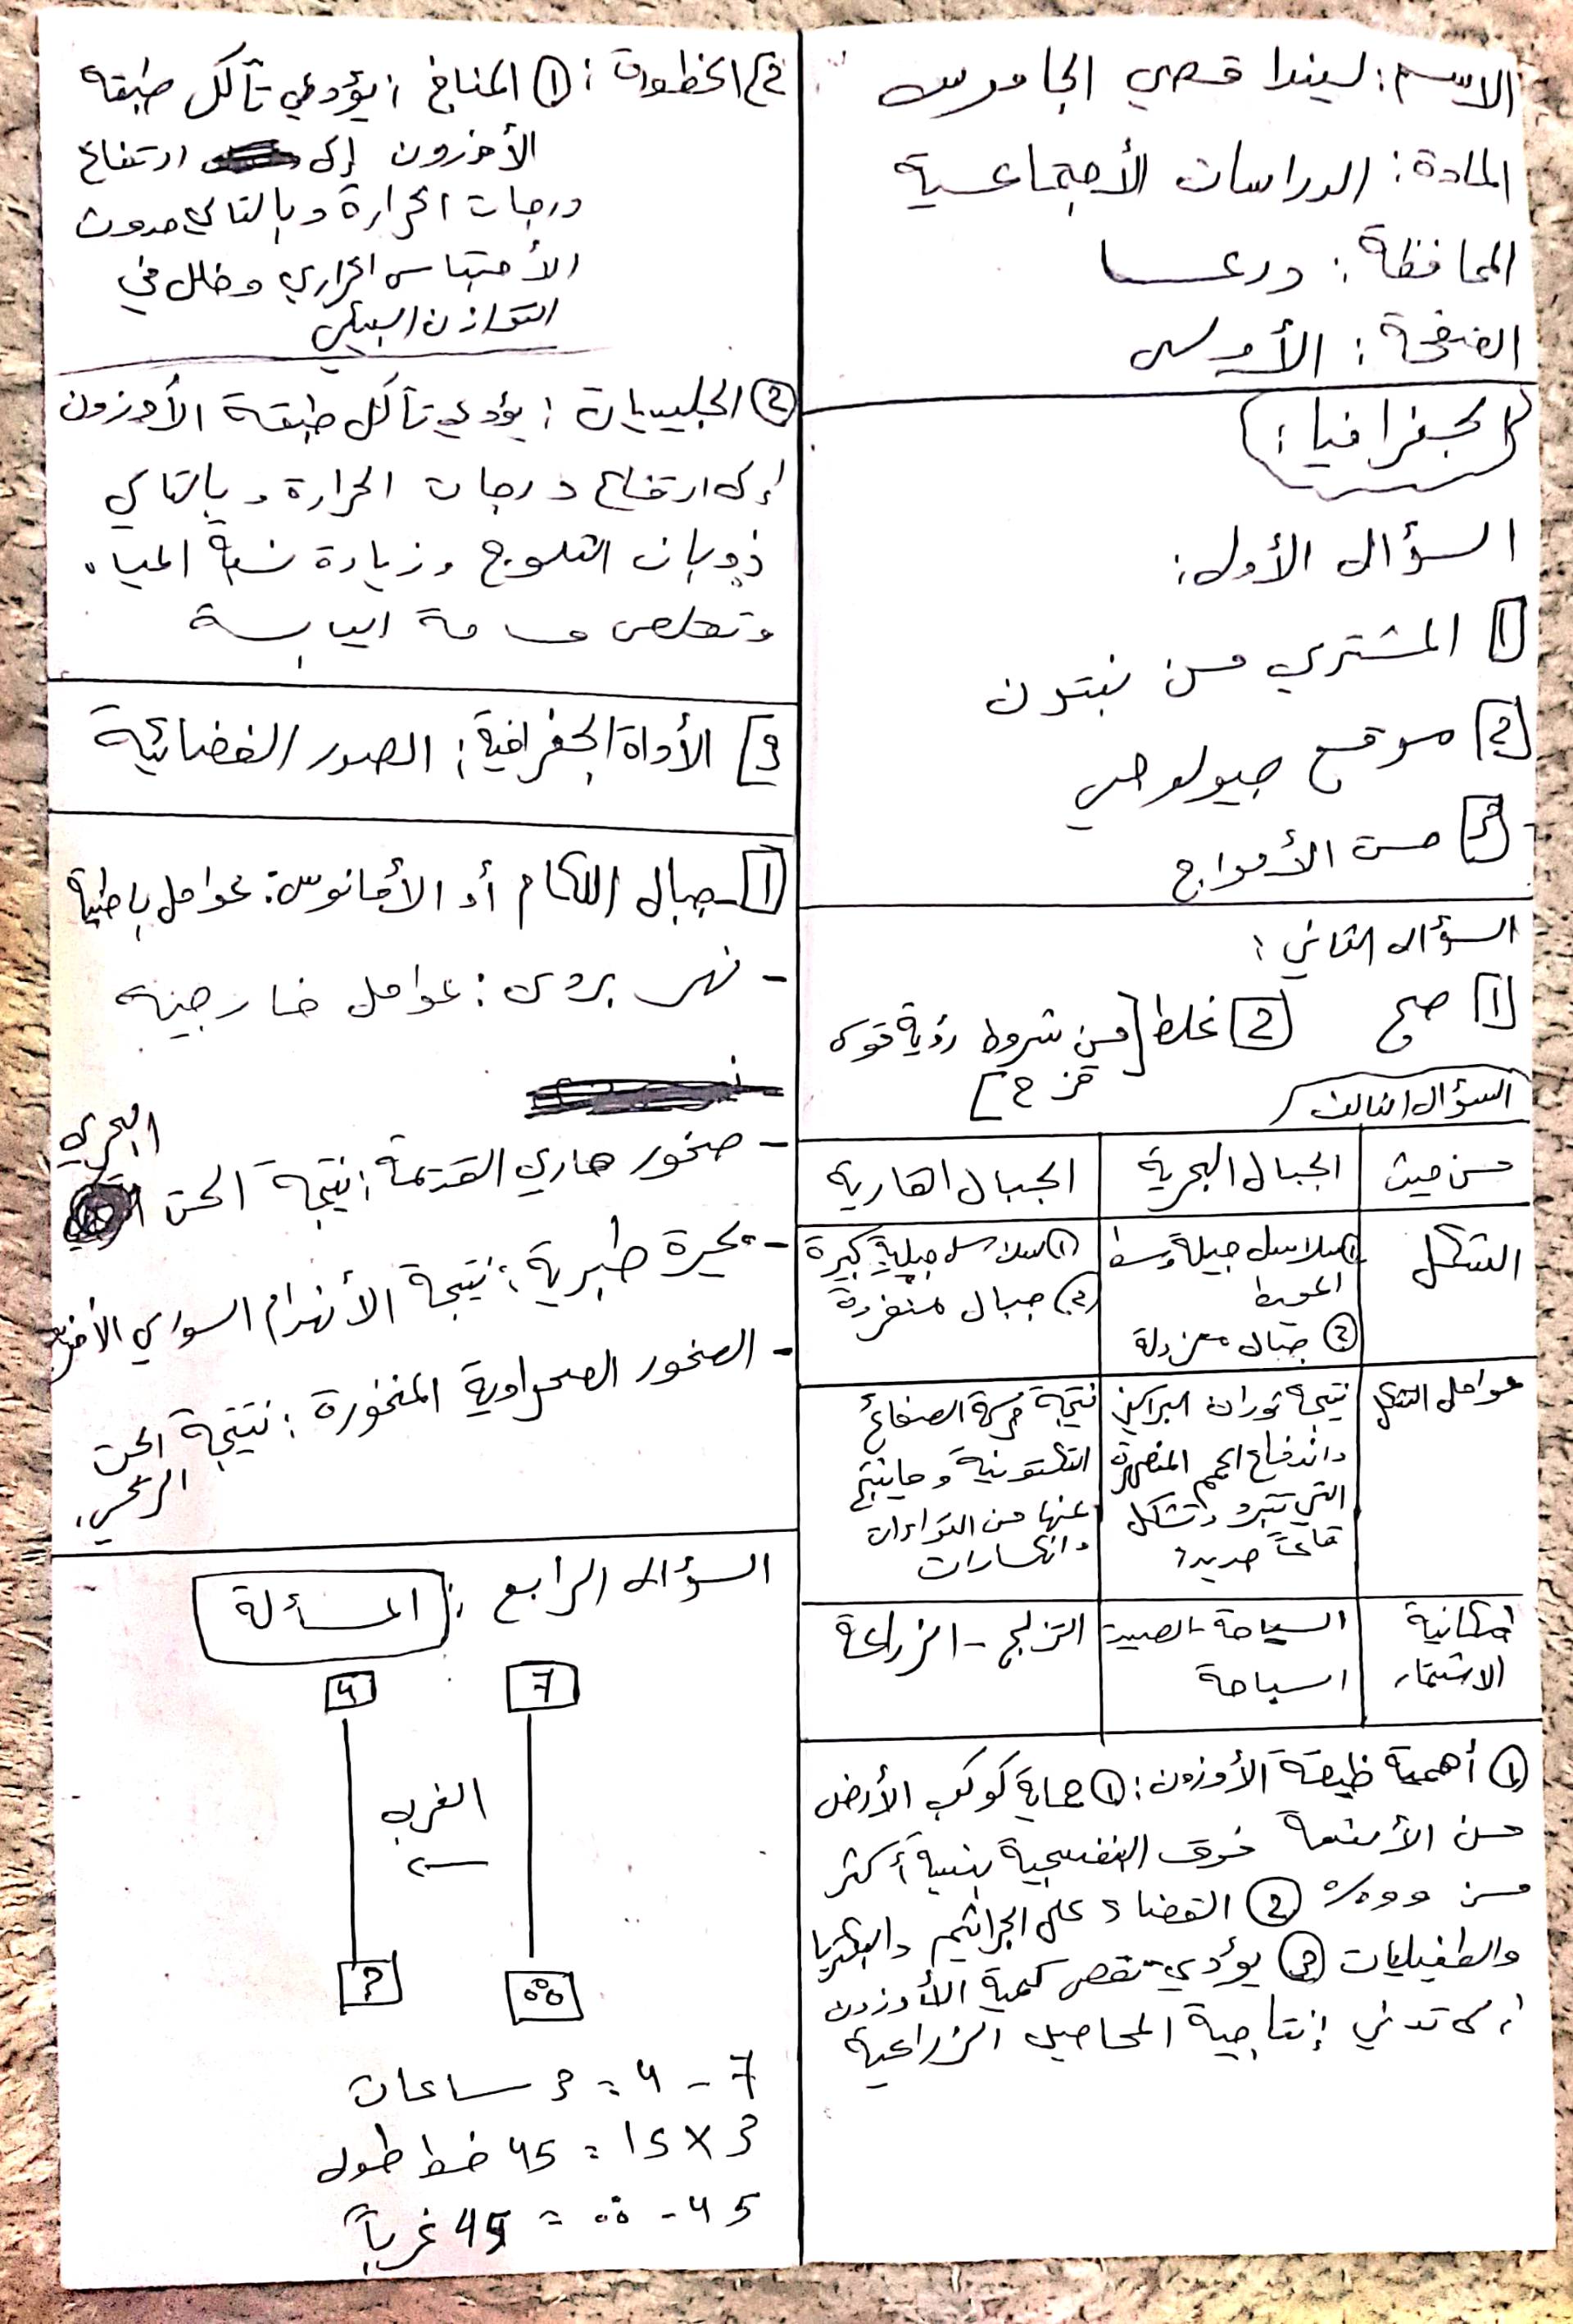 الاسم: ليندا قصي الجاموس
المادة: الدراسات الأجتماعية
المحافظة: درعا
الصفحة: الأولى
الجغرافيا:
السؤال الأول:
1 المشتري من نبتون
2 موقع جيولوجي
3 من الأمواج
السؤال الثاني:
1 صح 2 غلط [من شروط رؤية قوس
قزح]
السؤال الثالث
من حيث الجبال البحرية الجبال القارية
الشكل
① سلاسل جبلية وسط
المحيط
② جبال معزولة
① سلاسل جبلية كبيرة
② جبال منفردة
عوامل التشكل
نتيجة ثوران البراكين
واندفاع الحمم المنصهرة
التي تتبرد وتشكل
قاعاً جديداً
نتيجة حركة الصفائح
التكتونية وما ينتج
عنها من التواءات
وانكسارات
إمكانية
الاستثمار
السياحة - الصيد
السباحة
التزلج - الزراعة
① أهمية طبقة الأوزون: ① حماية كوكب الأرض
من الأشعة فوق البنفسجية بنسبة أكثر
من 99% ② القضاء على الجراثيم والبكتريا
والطفيليات ③ يؤدي نقص كمية الأوزون
إلى تدني إنتاجية المحاصيل الزراعية
2 الخطورة: ① المناخ: يؤدي تآكل طبقة
الأوزون إلى ارتفاع
درجات الحرارة وبالتالي حدوث
الأحتباس الحراري وخلل في
التوازن البيئي
② الجليديات: يؤدي تآكل طبقة الأوزون
إلى ارتفاع درجات الحرارة وبالتالي
ذوبان الثلوج وزيادة نسبة المياه
وتقلص مساحة اليابسة
3 الأداة الجغرافية: الصور الفضائية
1 - جبال اللكام أو الأمانوس: عوامل باطنية
- نهر بردى: عوامل خارجية
- صخور هاري القديمة: نتيجة الحت البحري
- بحيرة طبرية: نتيجة الأنهدام السوري الأفريقي
- الصخور الصحراوية المنخورة: نتيجة الحت
الريحي.
السؤال الرابع: المسألة
4 7
الغرب
←
? 00
7 - 4 = 3 ساعات
3 × 15 = 45 خط طول
45 - 00 = 45 غرباً